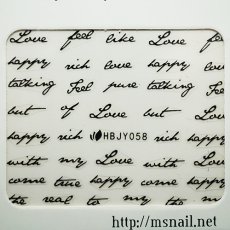 Love feel like Love feel
happy rich love happy
talking Feel pure talking
but of Love but
happy rich HBJY058 happy rich
with my Love with
come true happy come happy
the real to my the
http://msnail.net